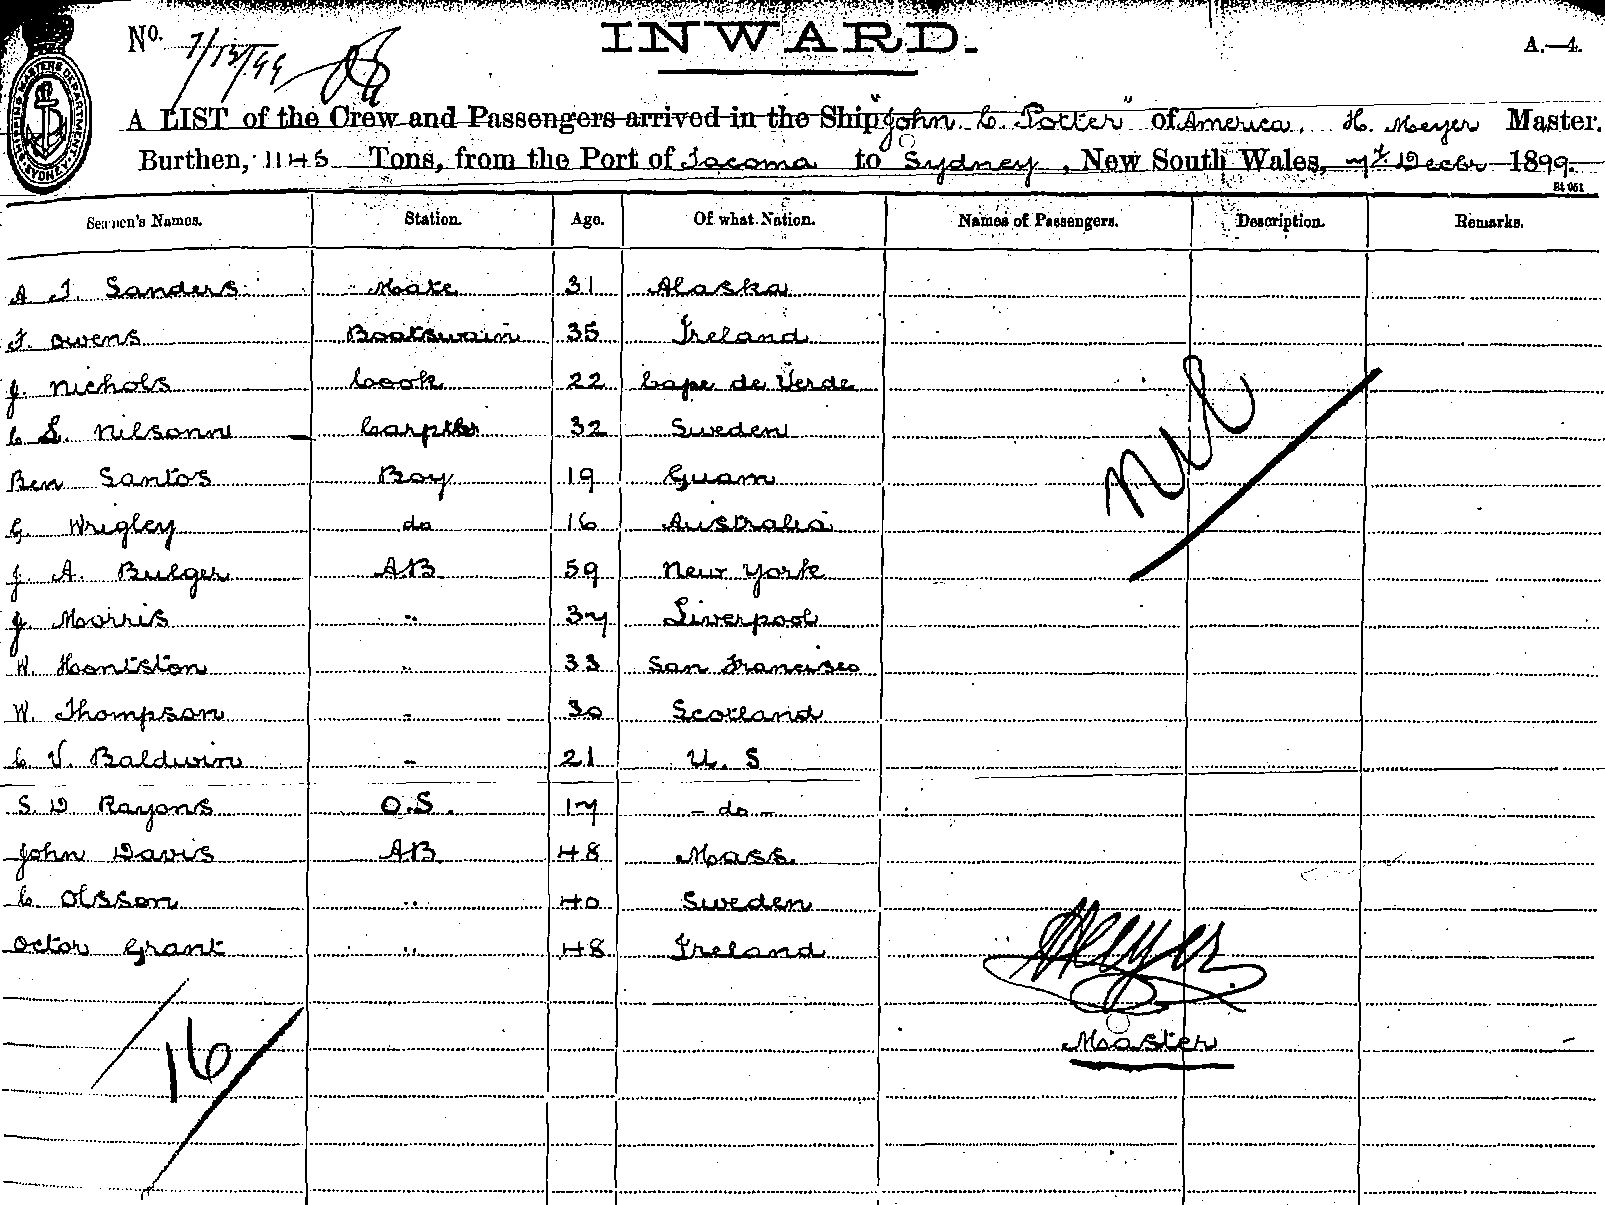 No. 7/12/99
INWARD.
A.—4.
SHIPPING MASTERS DEPARTMENT SYDNEY
A LIST of the Crew and Passengers arrived in the Ship "John C. Potter" of America, H. Meyer Master.
Burthen, 1145 Tons, from the Port of Tacoma to Sydney, New South Wales, 7th Decbr 1899.
Seamen's Names. Station. Age. Of what Nation. Names of Passengers. Description. Remarks.
A J. Sanders Mate 31 Alaska
F. Owens Boatswain 35 Ireland
J. Nichols Cook 22 Cape de Verde
C S. Nilsonn Carpter 32 Sweden
Ben Santos Boy 19 Guam
G. Wrigley do 16 Australia
J. A. Bulger AB 59 New York
J. Morris " 37 Liverpool
W. Hontston " 33 San Francisco
W. Thompson " 30 Scotland
C V. Baldwin " 21 U. S
S. D Rayons O.S. 17 - do -
John Davis AB 48 Mass.
C. Olsson " 40 Sweden
Octor Grant " 48 Ireland
Nil
HMeyer
Master
16